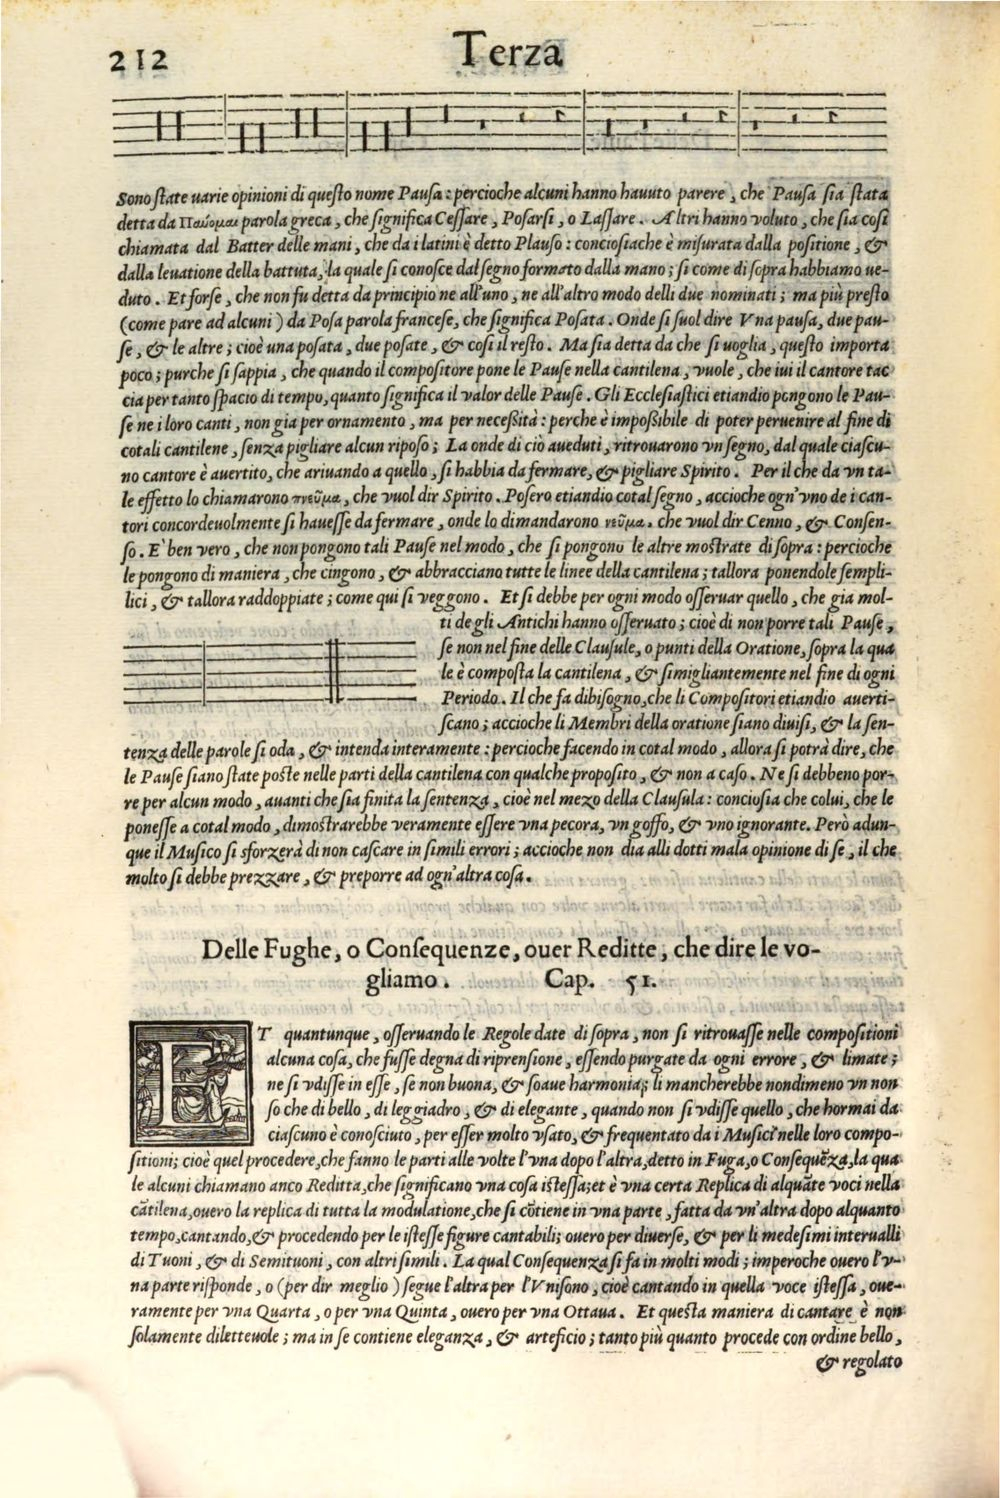 212
Terza
Sono ſtate uarie opinioni di queſto nome Pauſa: percioche alcuni hanno hauuto parere, che Pauſa ſia ſtata
detta da Παύομαι parola greca, che ſignifica Ceſſare, Poſarſi, o Laſſare. Altri hanno voluto, che ſia coſi
chiamata dal Batter delle mani, che da i latini è detto Plauſo: concioſiache è miſurata dalla poſitione, &
dalla leuatione della battuta, la quale ſi conoſce dal ſegno formato dalla mano; ſi come di ſopra habbiamo ue-
duto. Et forſe, che non fu detta da principio ne all'uno, ne all'altro modo delli due nominati; ma più preſto
(come pare ad alcuni) da Poſa parola franceſe, che ſignifica Poſata. Onde ſi ſuol dire Vna pauſa, due pau-
ſe, & le altre; cioè una poſata, due poſate, & coſi il reſto. Ma ſia detta da che ſi uoglia, queſto importa
poco; purche ſi ſappia, che quando il compoſitore pone le Pauſe nella cantilena, vuole, che iui il cantore tac
cia per tanto ſpacio di tempo, quanto ſignifica il valor delle Pauſe. Gli Eccleſiaſtici etiandio pongono le Pau-
ſe ne i loro canti, non gia per ornamento, ma per neceßità: perche è impoßibile di poter peruenire al fine di
cotali cantilene, ſenza pigliare alcun ripoſo; La onde di ciò aueduti, ritrouarono vn ſegno, dal quale ciaſcu-
no cantore è auertito, che ariuando a quello, ſi habbia da fermare, & pigliare Spirito. Per il che da vn ta-
le effetto lo chiamarono πνεῦμα, che vuol dir Spirito. Poſero etiandio cotal ſegno, accioche ogn'vno de i can-
tori concordeuolmente ſi haueſſe da fermare, onde lo dimandarono νεῦμα. che vuol dir Cenno, & Conſen-
ſo. E' ben vero, che non pongono tali Pauſe nel modo, che ſi pongono le altre moſtrate di ſopra: percioche
le pongono di maniera, che cingono, & abbracciano tutte le linee della cantilena; tallora ponendole ſempli-
lici, & tallora raddoppiate; come qui ſi veggono. Et ſi debbe per ogni modo oſſeruar quello, che gia mol-
ti de gli Antichi hanno oſſeruato; cioè di non porre tali Pauſe,
ſe non nel fine delle Clauſule, o punti della Oratione, ſopra la qua
le è compoſta la cantilena, & ſimigliantemente nel fine di ogni
Periodo. Il che fa dibiſogno, che li Compoſitori etiandio auerti-
ſcano; accioche li Membri della oratione ſiano diuiſi, & la ſen-
tenza delle parole ſi oda, & intenda interamente: percioche facendo in cotal modo, allora ſi potrà dire, che
le Pauſe ſiano ſtate poſte nelle parti della cantilena con qualche propoſito, & non a caſo. Ne ſi debbeno por-
re per alcun modo, auanti che ſia finita la ſentenza, cioè nel mezo della Clauſula: concioſia che colui, che le
poneſſe a cotal modo, dimoſtrarebbe veramente eſſere vna pecora, vn goffo, & vno ignorante. Però adun-
que il Muſico ſi sforzerà di non caſcare in ſimili errori; accioche non dia alli dotti mala opinione di ſe, il che
molto ſi debbe prezzare, & preporre ad ogn'altra coſa.
Delle Fughe, o Conſequenze, ouer Reditte, che dire le vo-
gliamo. Cap. 51.
ET quantunque, oſſeruando le Regole date di ſopra, non ſi ritrouaſſe nelle compoſitioni
alcuna coſa, che fuſſe degna di riprenſione, eſſendo purgate da ogni errore, & limate;
ne ſi vdiſſe in eſſe, ſe non buona, & ſoaue harmonia; li mancherebbe nondimeno vn non
ſo che di bello, di leggiadro, & di elegante, quando non ſi vdiſſe quello, che hormai da
ciaſcuno è conoſciuto, per eſſer molto vſato, & frequentato da i Muſici nelle loro compo-
ſitioni; cioè quel procedere, che fanno le parti alle volte l'vna dopo l'altra, detto in Fuga, o Conſequēza, la qua
le alcuni chiamano anco Reditta, che ſignificano vna coſa iſteſſa; et è vna certa Replica di alquāte voci nella
cātilena, ouero la replica di tutta la modulatione, che ſi cōtiene in vna parte, fatta da vn'altra dopo alquanto
tempo, cantando, & procedendo per le iſteſſe figure cantabili; ouero per diuerſe, & per li medeſimi interualli
di Tuoni, & di Semituoni, con altri ſimili. La qual Conſequenza ſi fa in molti modi; imperoche ouero l'v-
na parte riſponde, o (per dir meglio) ſegue l'altra per l'Vniſono, cioè cantando in quella voce iſteſſa, oue-
ramente per vna Quarta, o per vna Quinta, ouero per vna Ottaua. Et queſta maniera di cantare è non
ſolamente diletteuole; ma in ſe contiene eleganza, & arteficio; tanto più quanto procede con ordine bello,
& regolato